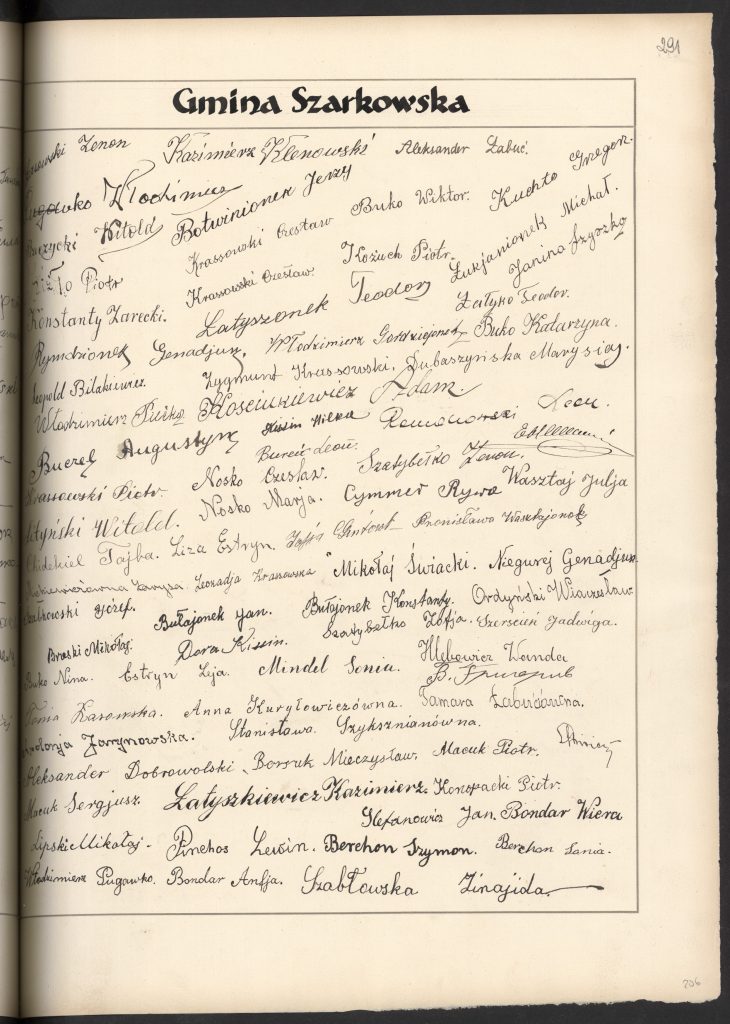 291
Gmina Szarkowska
Zenon Kazimierz Klenowski Aleksander Łabuć.
Włodzimierz Botwinionek Jerzy Buko Wiktor. Kuchto Grzegorz.
Witold Krassowski Czesław Kożuch Piotr. Łukjanionek Michał.
Piotr Krassowski Czesław. Janina
Konstanty Zarecki. Łatyszonek Teodor Załysko Teodor.
Rymdzionek Genadjusz. Włodzimierz Buko Katarzyna.
Leopold Bilakiewicz Zygmunt Krassowski. Dubaszyńska Marysia.
Włodzimierz Kościukiewicz Adam.
Augustyn Kissin Romanowski Leon.
Krassowski Piotr. Nosko Czesław. Bureić Leon. Szatybełko Zenon.
Witold. Nosko Marja. Cymmer Rywa Wasztaj Julja
Chidekiel Tajba. Liza Estryn. Bronisława Wasztajonek
Leokadja Kraszewska Mikołaj Świacki. Niegurej Genadjusz
Józef. Bułajonek Jan. Bułajonek Konstanty. Ordyński Wiaczesław
Broski Mikołaj. Dora Kissin. Szatybełko Zofja. Szerszeń Jadwiga.
Buko Nina. Estryn Leja. Mindel Sonia. Hlebowicz Wanda
Tania Kasowska. Anna Kuryłowiczówna. Tamara Łabudźówna.
Jarynowska. Stanisława Szyksznianówna.
Aleksander Dobrowolski Borsuk Mieczysław. Macuk Piotr.
Macuk Sergjusz. Łatyszkiewicz Kazimierz. Konopacki Piotr.
Stefanowicz Jan. Bondar Wiera
Lipski Mikołaj. Pinchos Lewin. Berchon Szymon. Berchon Sonia.
Włodzimierz Pugawko. Bondar Szabłowska Zinajida.
206